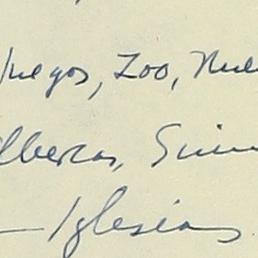 Juegos, Zoo, Nue
Albercas, Gim
— Iglesias